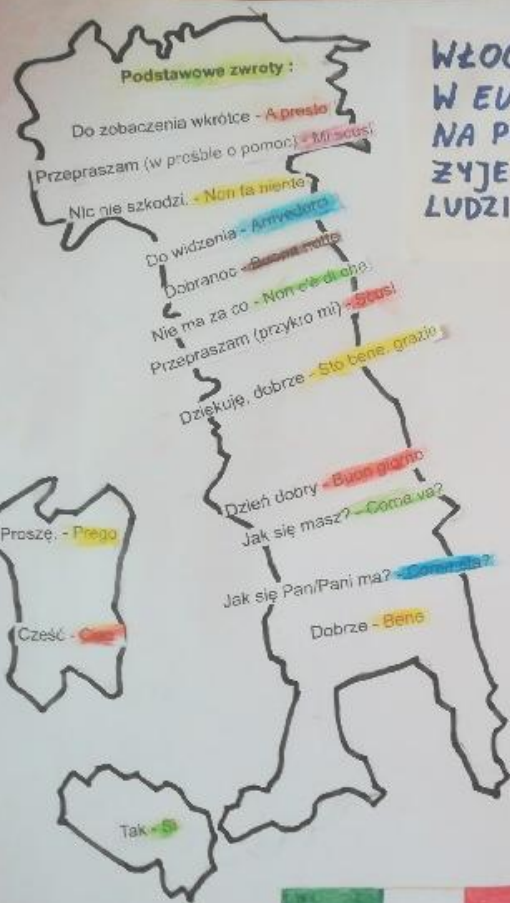 Podstawowe zwroty :
Do zobaczenia wkrótce - A presto
Przepraszam (w prośbie o pomoc) - Mi scusi
Nic nie szkodzi. - Non fa niente
Do widzenia - Arrivederci
Dobranoc - Buona notte
Nie ma za co - Non c'è di che
Przepraszam (przykro mi) - Scusi
Dziękuję, dobrze - Sto bene, grazie
Dzień dobry - Buon giorno
Jak się masz? - Come va?
Jak się Pan/Pani ma? - Come sta?
Dobrze - Bene
Proszę. - Prego
Cześć - Ciao
Tak - Si
WŁOC
W EU
NA P
ŻYJE
LUDZI